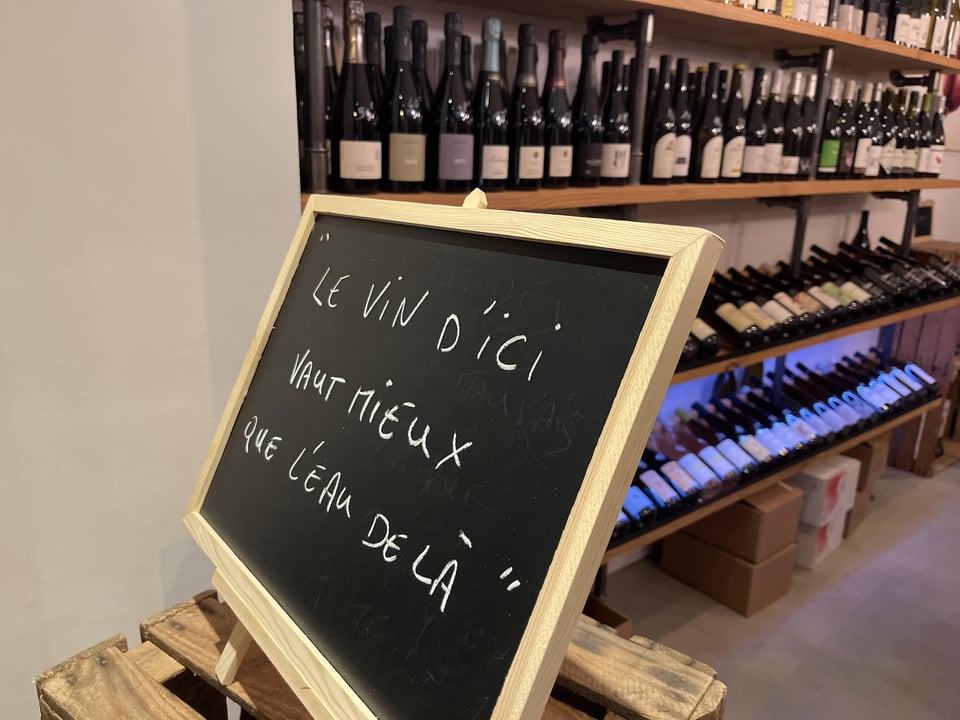 " LE VIN D'ICI
VAUT MIEUX
QUE L'EAU DE LÀ "